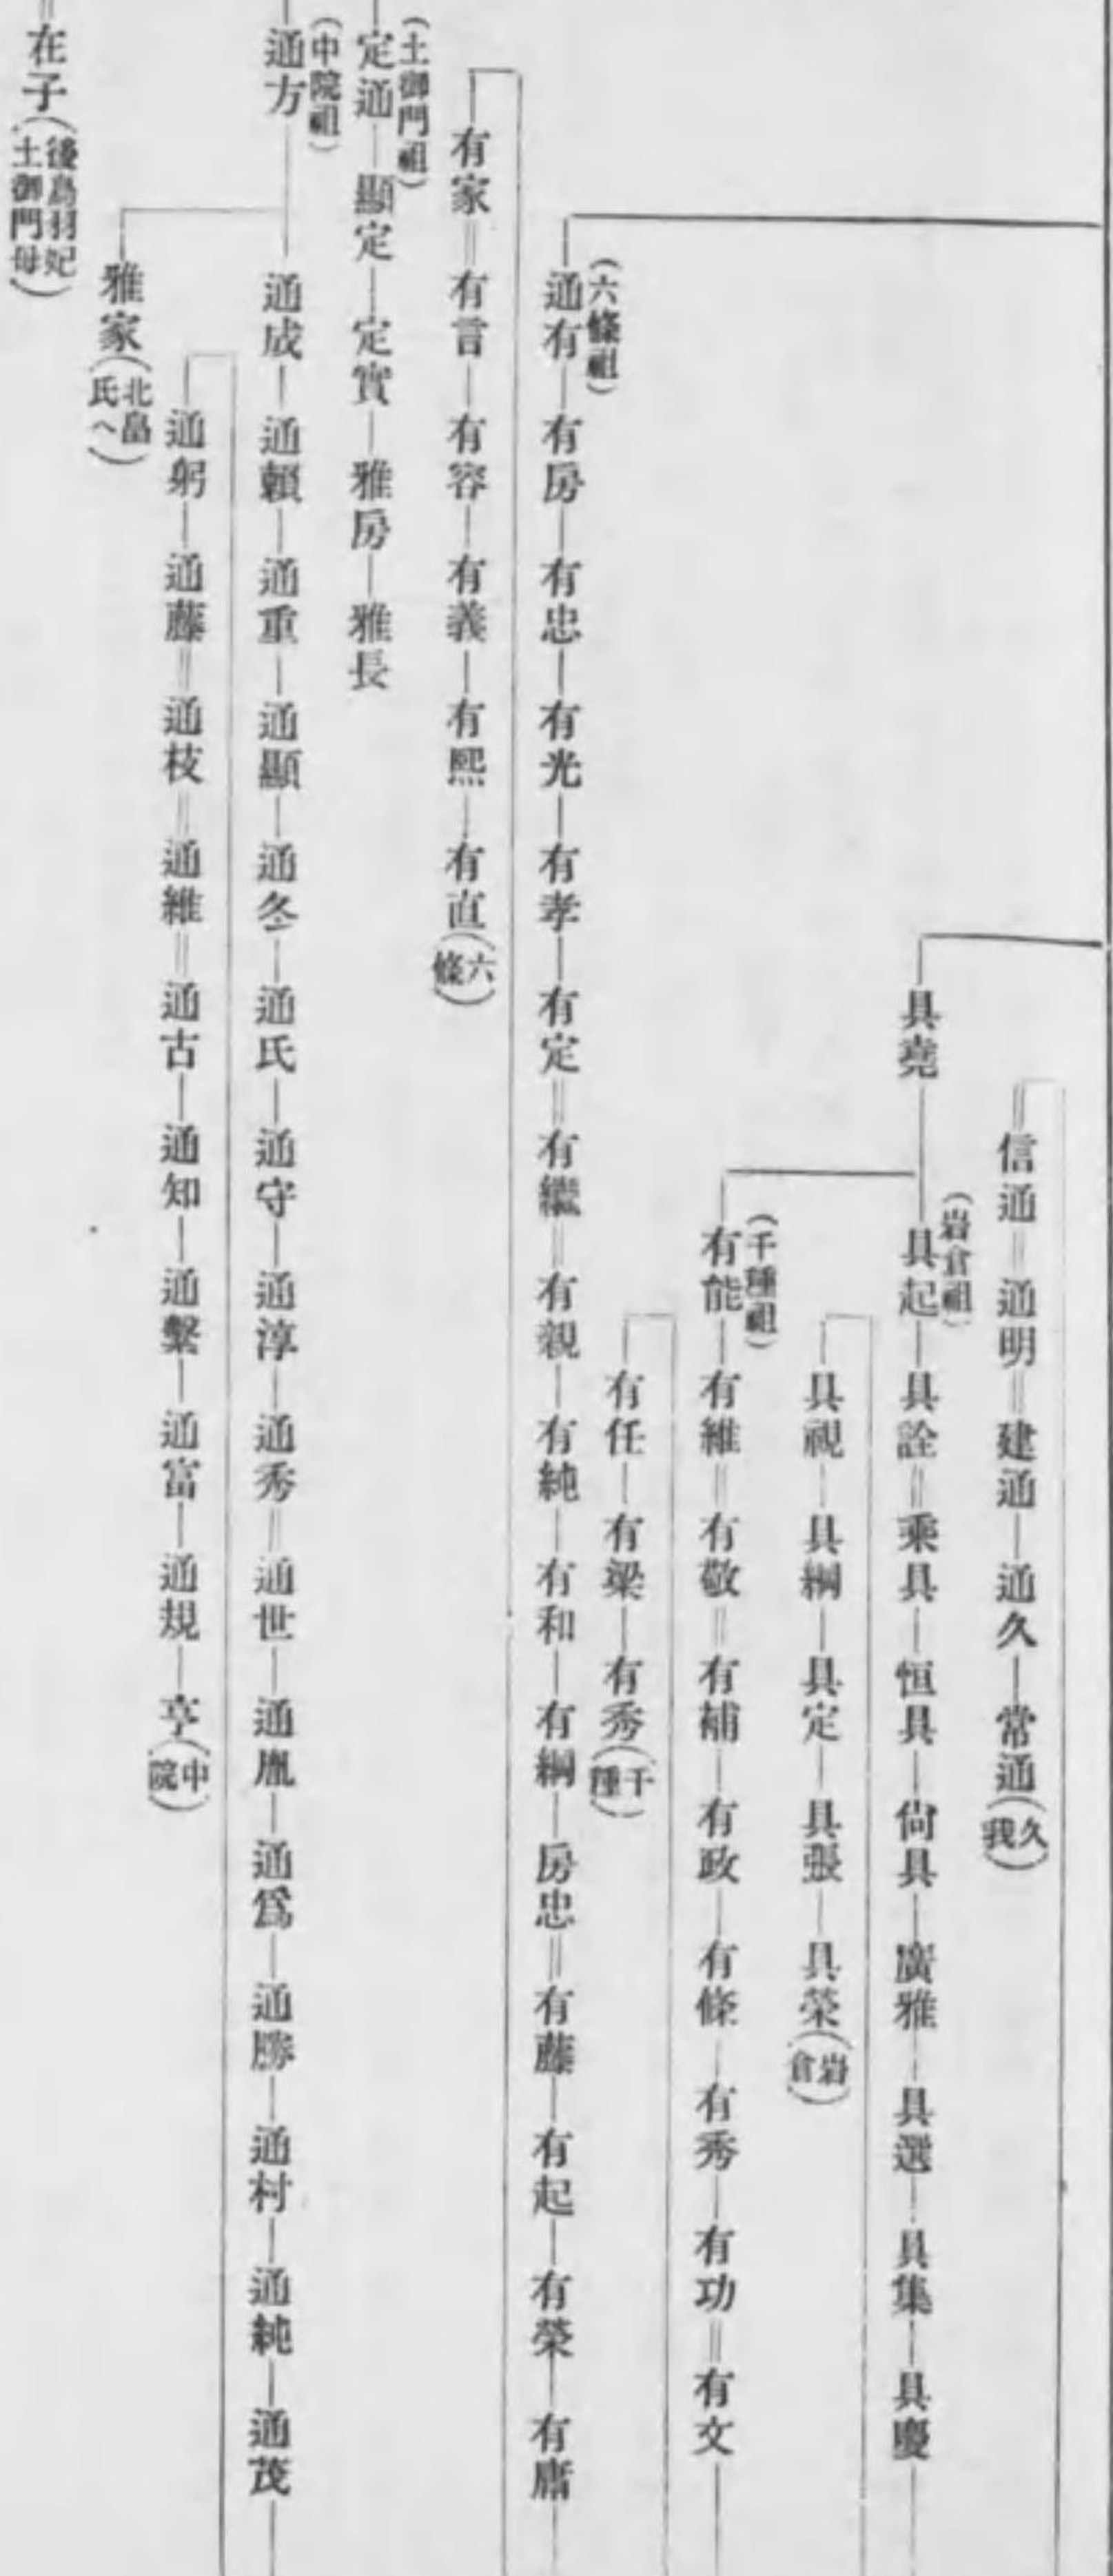 信通＝通明＝建通―通久―常通（久我）
具堯
（岩倉祖）
具起―具詮＝乘具―恒具―尙具―廣雅―具選―具集―具慶
具視―具綱―具定―具張―具榮（岩倉）
（千種祖）
有能―有維＝有敬＝有補―有政―有條―有秀―有功＝有文
有任―有梁―有秀（千種）
（六條祖）
通有―有房―有忠―有光―有孝―有定＝有繼＝有親―有純―有和―有綱―房忠＝有藤―有起―有榮―有庸
有家＝有言―有容―有義―有熙―有直（六條）
（土御門祖）
定通―顯定―定實―雅房―雅長
（中院祖）
通方
通成―通賴―通重―通顯―通冬―通氏―通守―通淳―通秀＝通世―通胤―通爲―通勝―通村―通純―通茂
通躬―通藤＝通枝＝通維＝通古―通知―通繫―通富―通規―亨（中院）
雅家（北畠氏へ）
在子（後鳥羽妃土御門母）